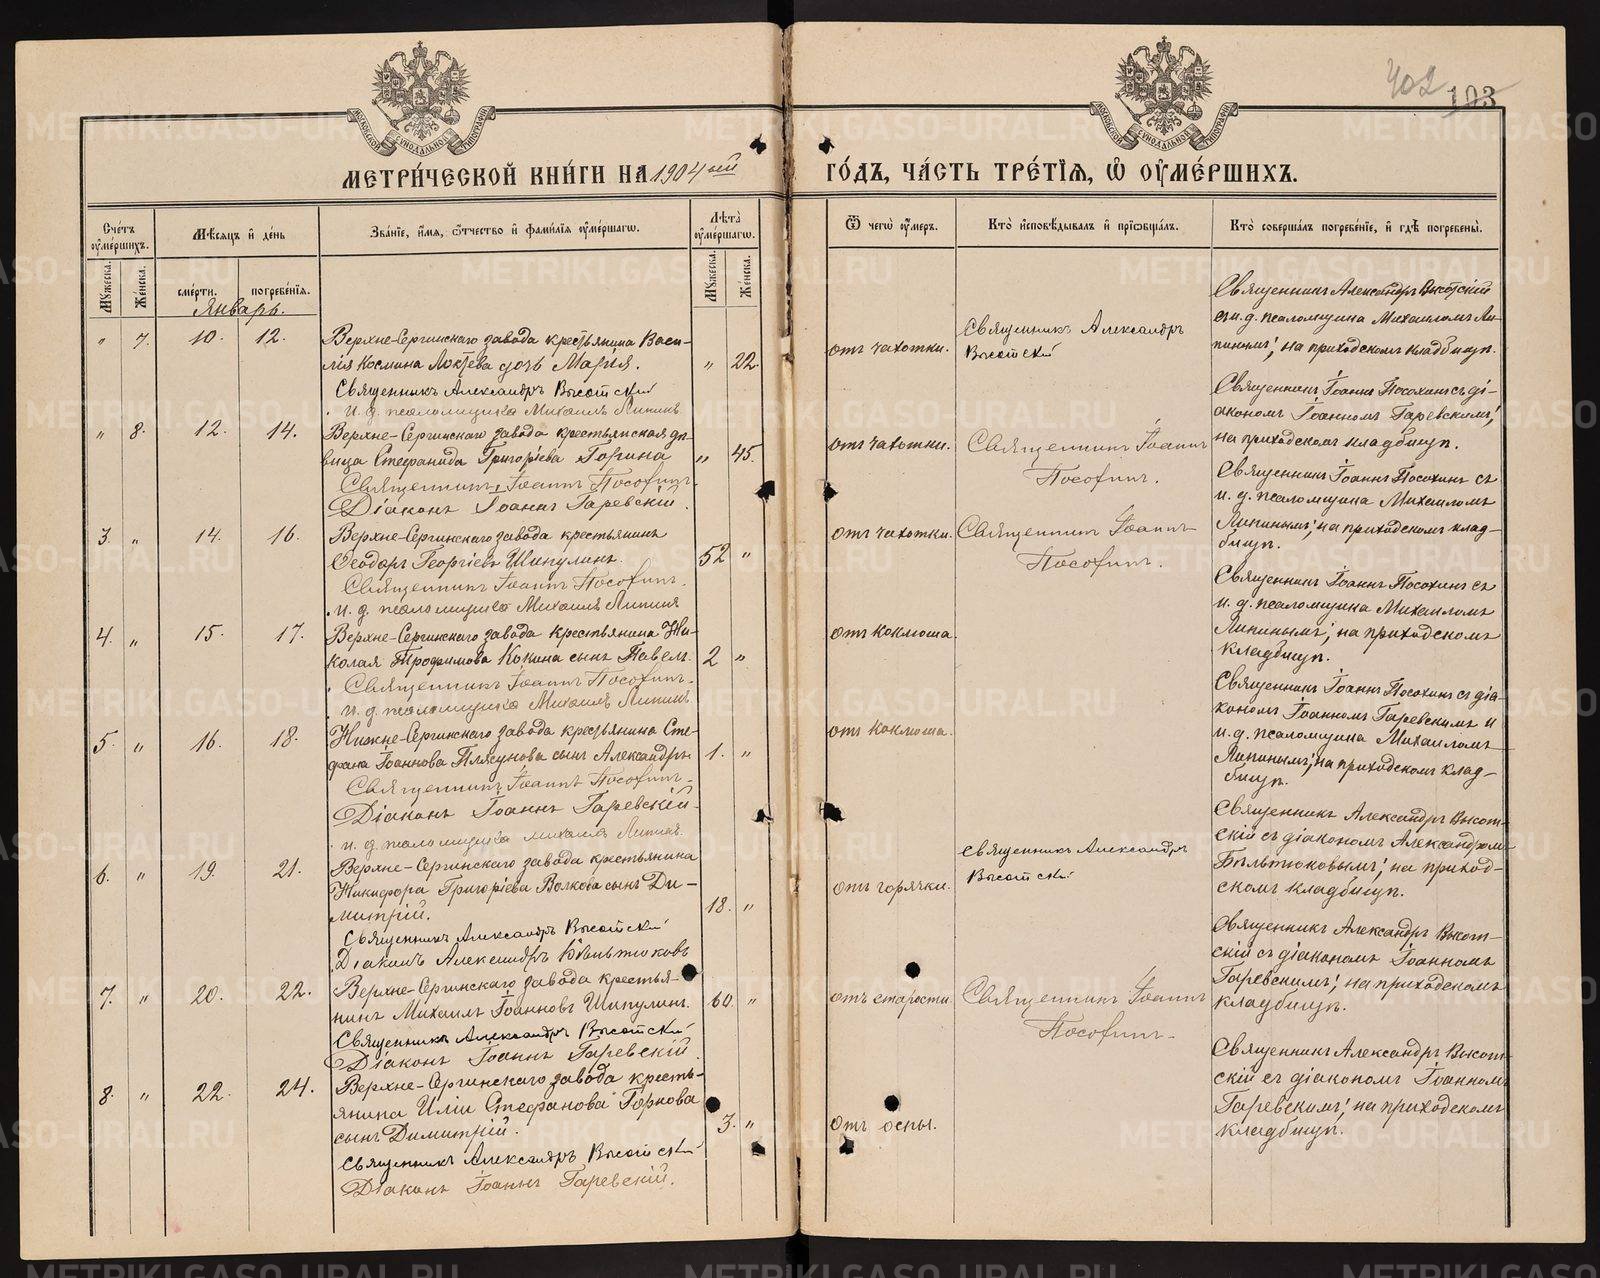 402
103
МЕТРИЧЕСКОЙ КНИГИ НА 1904ый ГОДЪ, ЧАСТЬ ТРЕТІЯ, Ѿ ОУМЕРШИХЪ.
Счетъ оумершихъ.
Мѣсяцъ и день
Званіе, имя, отчество и фамилія оумершагѡ.
Лѣта оумершагѡ.
Ѿ чегѡ оумеръ.
Кто исповѣдывалъ и пріобщалъ.
Кто совершалъ погребеніе, и гдѣ погребены.
Мужеска.
Женска.
смерти.
погребенія.
Мужеска.
Женска.
Январь.
" 7. 10. 12.
Верхне-Сергинскаго завода крестьянина Васи-
лія Космина Локтева дочь Марія. " 22.
Священникъ Александръ Высотскій
и. д. псаломщика Михаилъ Липинъ
отъ чахотки.
Священникъ Александръ
Высотскій
Священникъ Александръ Высотскій
съ и. д. псаломщика Михаиломъ Ли-
пинымъ; на приходскомъ кладбищѣ.
" 8. 12. 14.
Верхне-Сергинскаго завода крестьянская дѣ-
вица Стефанида Григоріева Горина " 45.
Священникъ Іоаннъ Посохинъ
Діаконъ Іоаннъ Гаревскій.
отъ чахотки.
Священникъ Іоаннъ
Посохинъ.
Священникъ Іоаннъ Посохинъ съ ді-
акономъ Іоанномъ Гаревскимъ;
на приходскомъ кладбищѣ.
3. " 14. 16.
Верхне-Сергинскаго завода крестьянинъ
Ѳеодоръ Георгіевъ Шипулинъ. 52 "
Священникъ Іоаннъ Посохинъ.
и. д. псаломщика Михаилъ Липинъ
отъ чахотки.
Священникъ Іоаннъ
Посохинъ.
Священникъ Іоаннъ Посохинъ съ
и. д. псаломщика Михаиломъ
Липинымъ; на приходскомъ клад-
бищѣ.
4. " 15. 17.
Верхне-Сергинскаго завода крестьянина Ни-
колая Трофимова Кокина сынъ Павелъ. 2 "
Священникъ Іоаннъ Посохинъ.
и. д. псаломщика Михаилъ Липинъ
отъ коклюша.
Священникъ Іоаннъ Посохинъ съ
и. д. псаломщика Михаиломъ
Липинымъ; на приходскомъ
кладбищѣ.
5. " 16. 18.
Нижне-Сергинскаго завода крестьянина Сте-
фана Іоаннова Плясунова сынъ Александръ 1. "
Священникъ Іоаннъ Посохинъ.
Діаконъ Іоаннъ Гаревскій.
и. д. псаломщика Михаилъ Липинъ.
отъ коклюша.
Священникъ Іоаннъ Посохинъ съ діа-
кономъ Іоанномъ Гаревскимъ и
и. д. псаломщика Михаиломъ
Липинымъ; на приходскомъ клад-
бищѣ.
6. " 19. 21.
Верхне-Сергинскаго завода крестьянина
Никифора Григоріева Волкова сынъ Ди-
митрій. 18. "
Священникъ Александръ Высотскій
Діаконъ Александръ Бѣльтюковъ
отъ горячки.
Священникъ Александръ
Высотскій
Священникъ Александръ Высот-
скій съ діакономъ Александромъ
Бѣльтюковымъ; на приход-
скомъ кладбищѣ.
7. " 20. 22.
Верхне-Сергинскаго завода крестья-
нинъ Михаилъ Іоанновъ Шипулинъ. 60. "
Священникъ Александръ Высотскій
Діаконъ Іоаннъ Гаревскій.
отъ старости
Священникъ Іоаннъ
Посохинъ.
Священникъ Александръ Высот-
скій съ діакономъ Іоанномъ
Гаревскимъ; на приходскомъ
кладбищѣ.
8. " 22. 24.
Верхне-Сергинскаго завода кресть-
янина Иліи Стефанова Горнова
сынъ Димитрій. 3. "
Священникъ Александръ Высотскій
Діаконъ Іоаннъ Гаревскій.
отъ оспы.
Священникъ Александръ Высот-
скій съ діакономъ Іоанномъ
Гаревскимъ; на приходскомъ
кладбищѣ.
METRIKI.GASO-URAL.RU